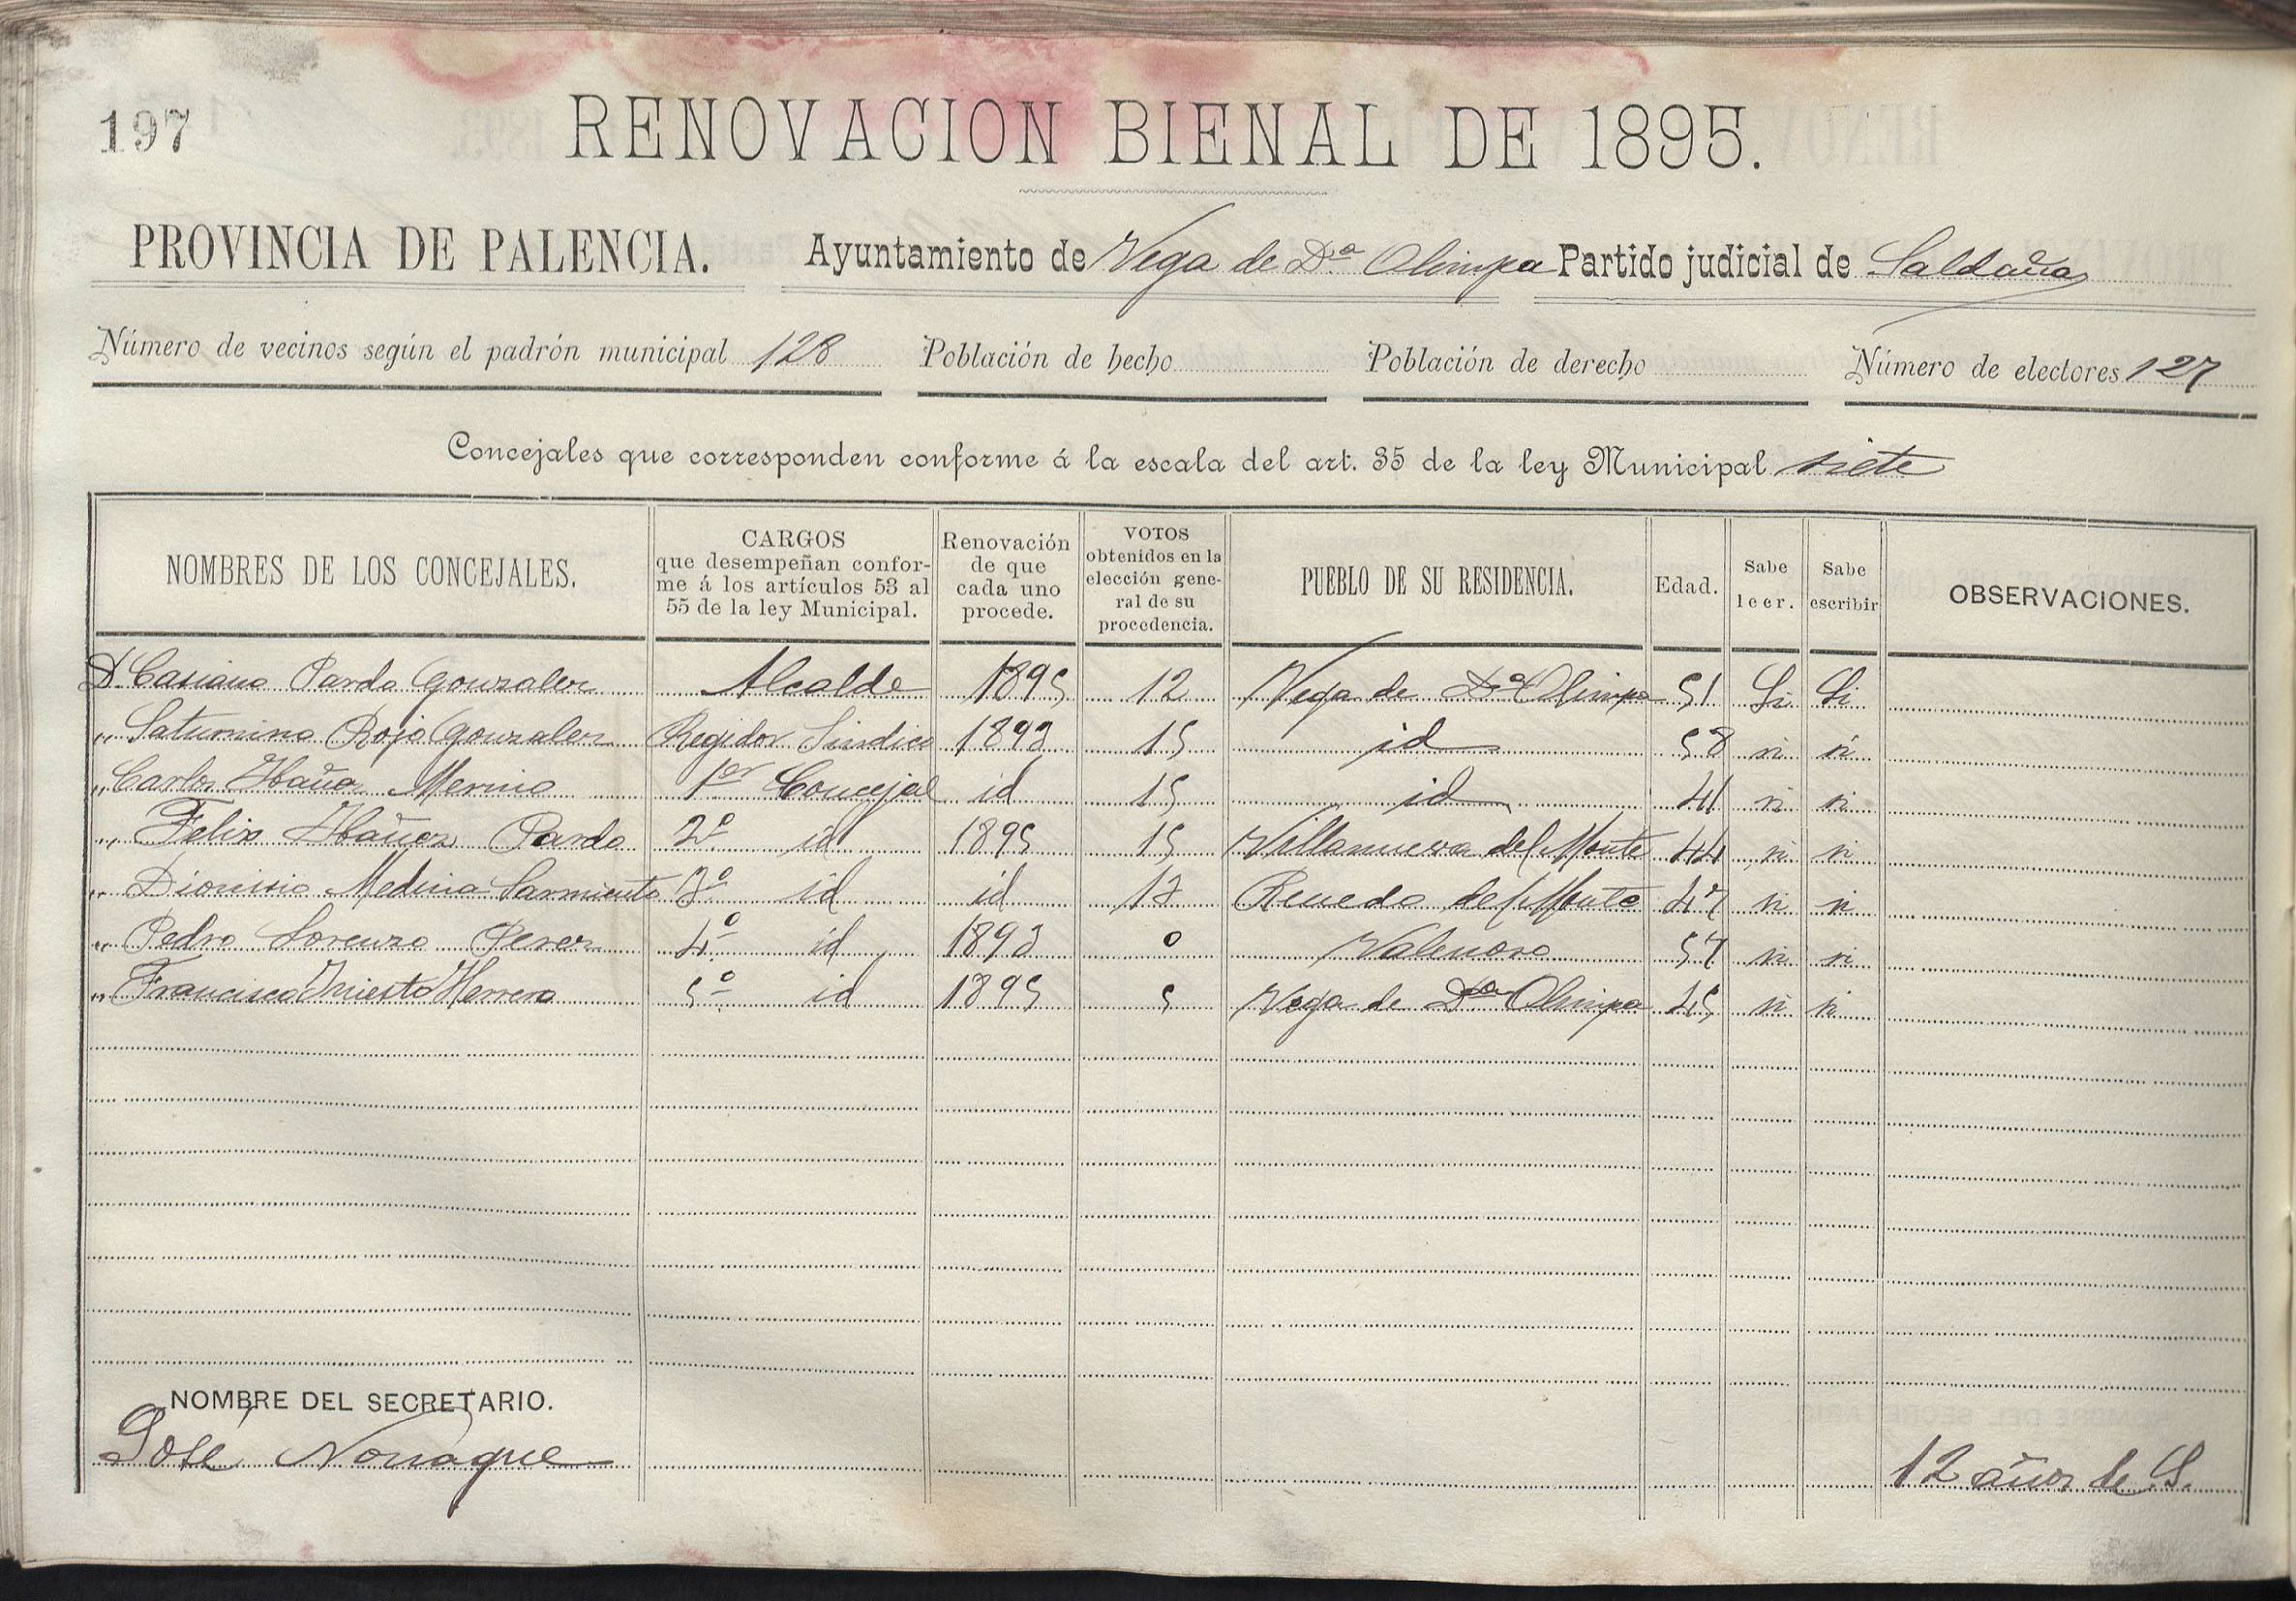 197
RENOVACION BIENAL DE 1895.
PROVINCIA DE PALENCIA. Ayuntamiento de Vega de D.ª Olimpa Partido judicial de Saldaña
Número de vecinos según el padrón municipal 128 Población de hecho Población de derecho Número de electores 127
Concejales que corresponden conforme á la escala del art. 35 de la ley Municipal siete
NOMBRES DE LOS CONCEJALES.
CARGOS
que desempeñan confor-
me á los artículos 53 al
55 de la ley Municipal.
Renovación
de que
cada uno
procede.
VOTOS
obtenidos en la
elección gene-
ral de su
procedencia.
PUEBLO DE SU RESIDENCIA.
Edad.
Sabe
leer.
Sabe
escribir
OBSERVACIONES.
D. Casiano Pardo Gonzalez Alcalde 1895 12 Vega de Dª Olimpa 51 Si Si
„ Saturnino Rojo Gonzalez Regidor Sindico 1893 15 id 58 si si
„ Carlos Ibañez Merino 1er Concejal id 15 id 41 si si
„ Felix Ibañez Pardo 2º id 1895 15 Villanueva del Monte 44 si si
„ Dionisio Medina Sarmiento 3º id id 17 Renedo del Monte 47 si si
„ Pedro Lorenzo Perez 4º id 1893 0 Valenoso 57 si si
„ Francisco Iniesto Herrero 5º id 1895 5 Vega de Dª Olimpa 45 si si
NOMBRE DEL SECRETARIO.
José Noriague 12 años de S.